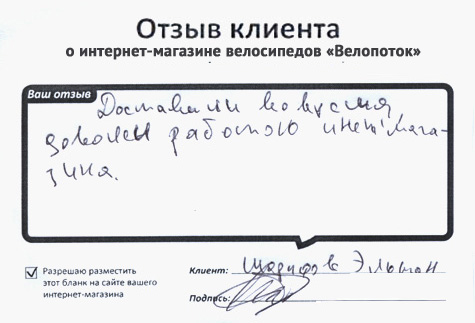 Отзыв клиента
о интернет-магазине велосипедов «Велопоток»
Ваш отзыв
Доставили вовремя,
доволен работою инет мага-
зина.
Разрешаю разместить
этот бланк на сайте вашего
интернет-магазина
Клиент: Шарифов Эльман
Подпись: